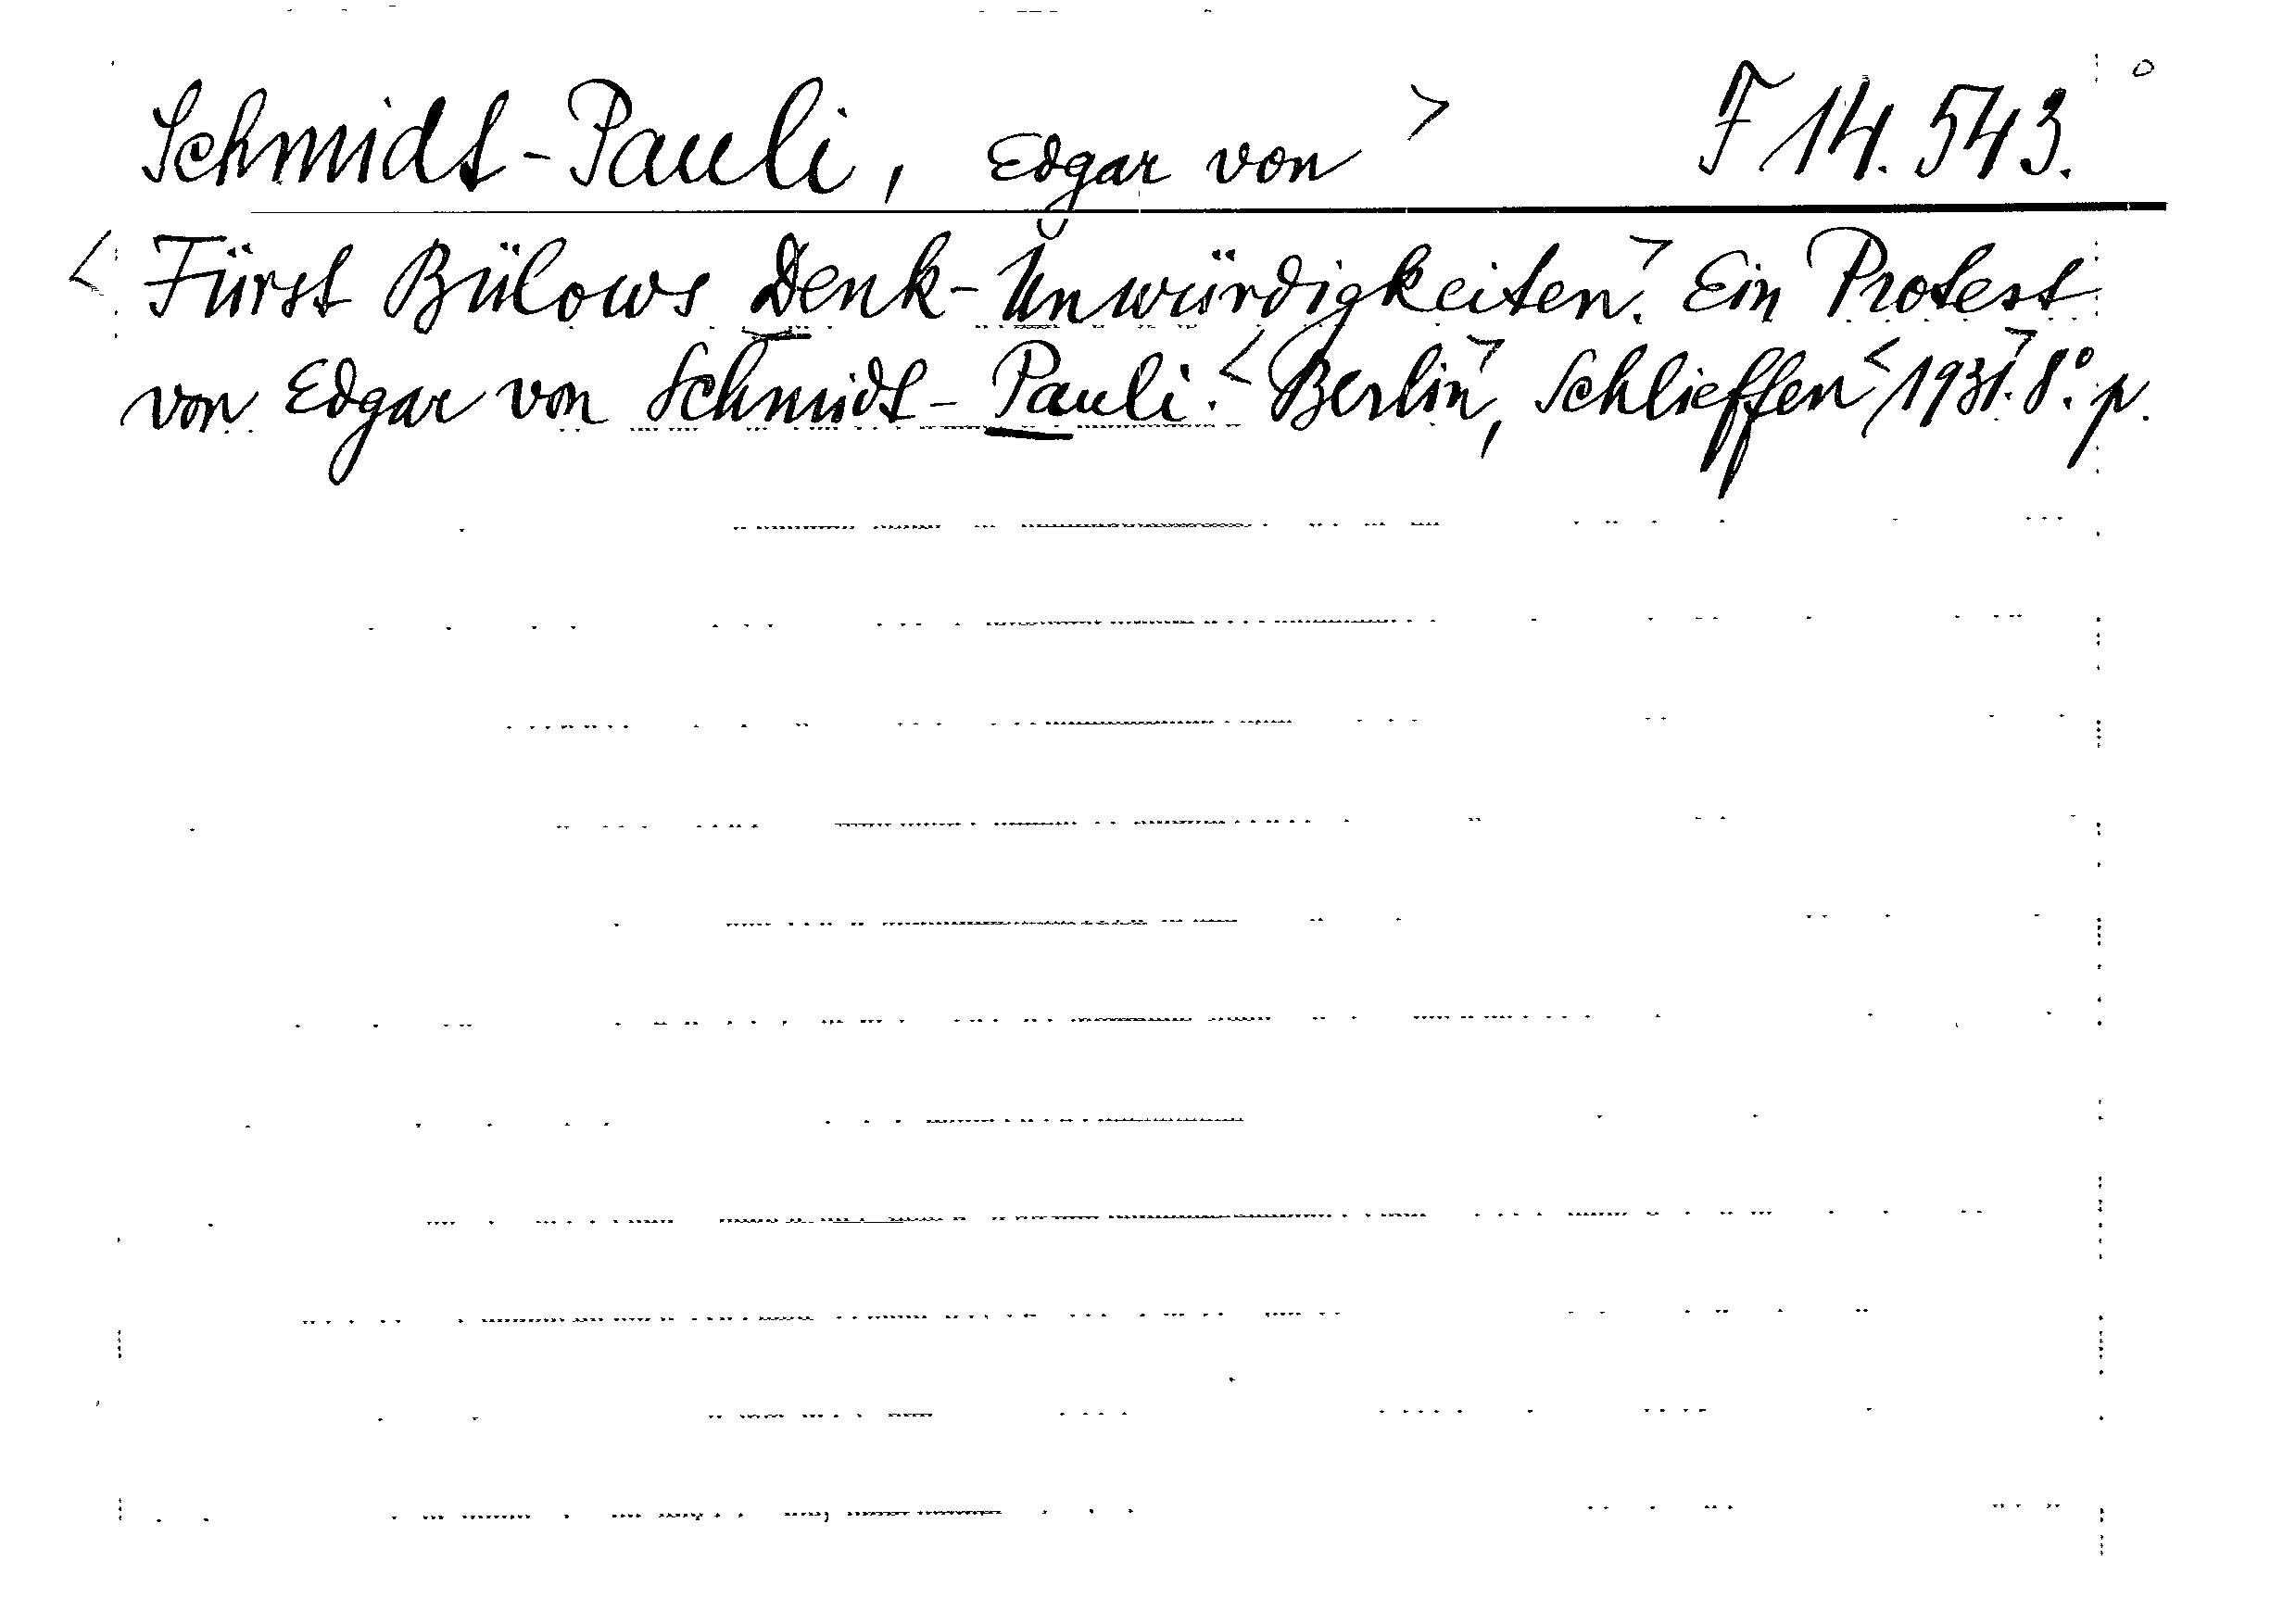 Schmidt-Pauli, Edgar von > F 14.543. o
< Fürst Bülows Denk-Unwürdigkeiten.> Ein Protest
von Edgar von Schmidt-Pauli. < Berlin>, Schlieffen < 1931.> 8°. p.